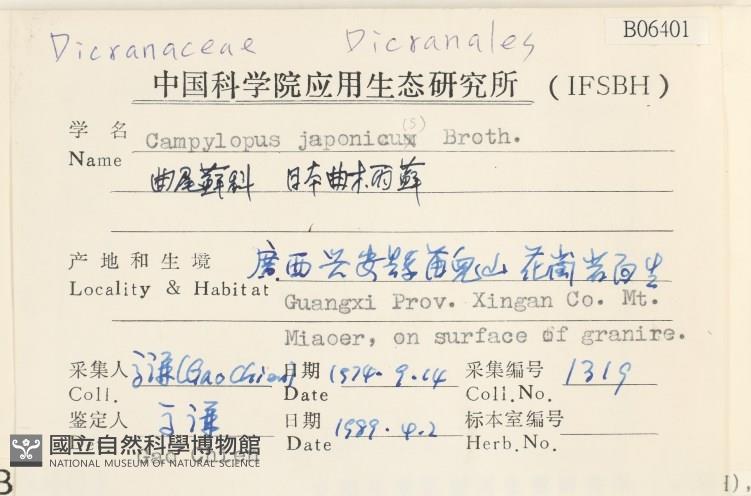 Dicranaceae Dicranales B06401
中国科学院应用生态研究所 (IFSBH)
学名 Campylopus japonicus(s) Broth.
Name
曲尾藓科 日本曲柄藓
产地和生境 廣西兴安县苗兒山 花崗岩面生
Locality & Habitat Guangxi Prov. Xingan Co. Mt.
Miaoer, on surface of granire.
采集人 (Gao Chien) 日期 1974.9.14 采集编号 1319
Coll. Date Coll.No.
鉴定人 日期 1989.4.2 标本室编号
Date Herb.No.
Gao Chien
國立自然科學博物館
NATIONAL MUSEUM OF NATURAL SCIENCE